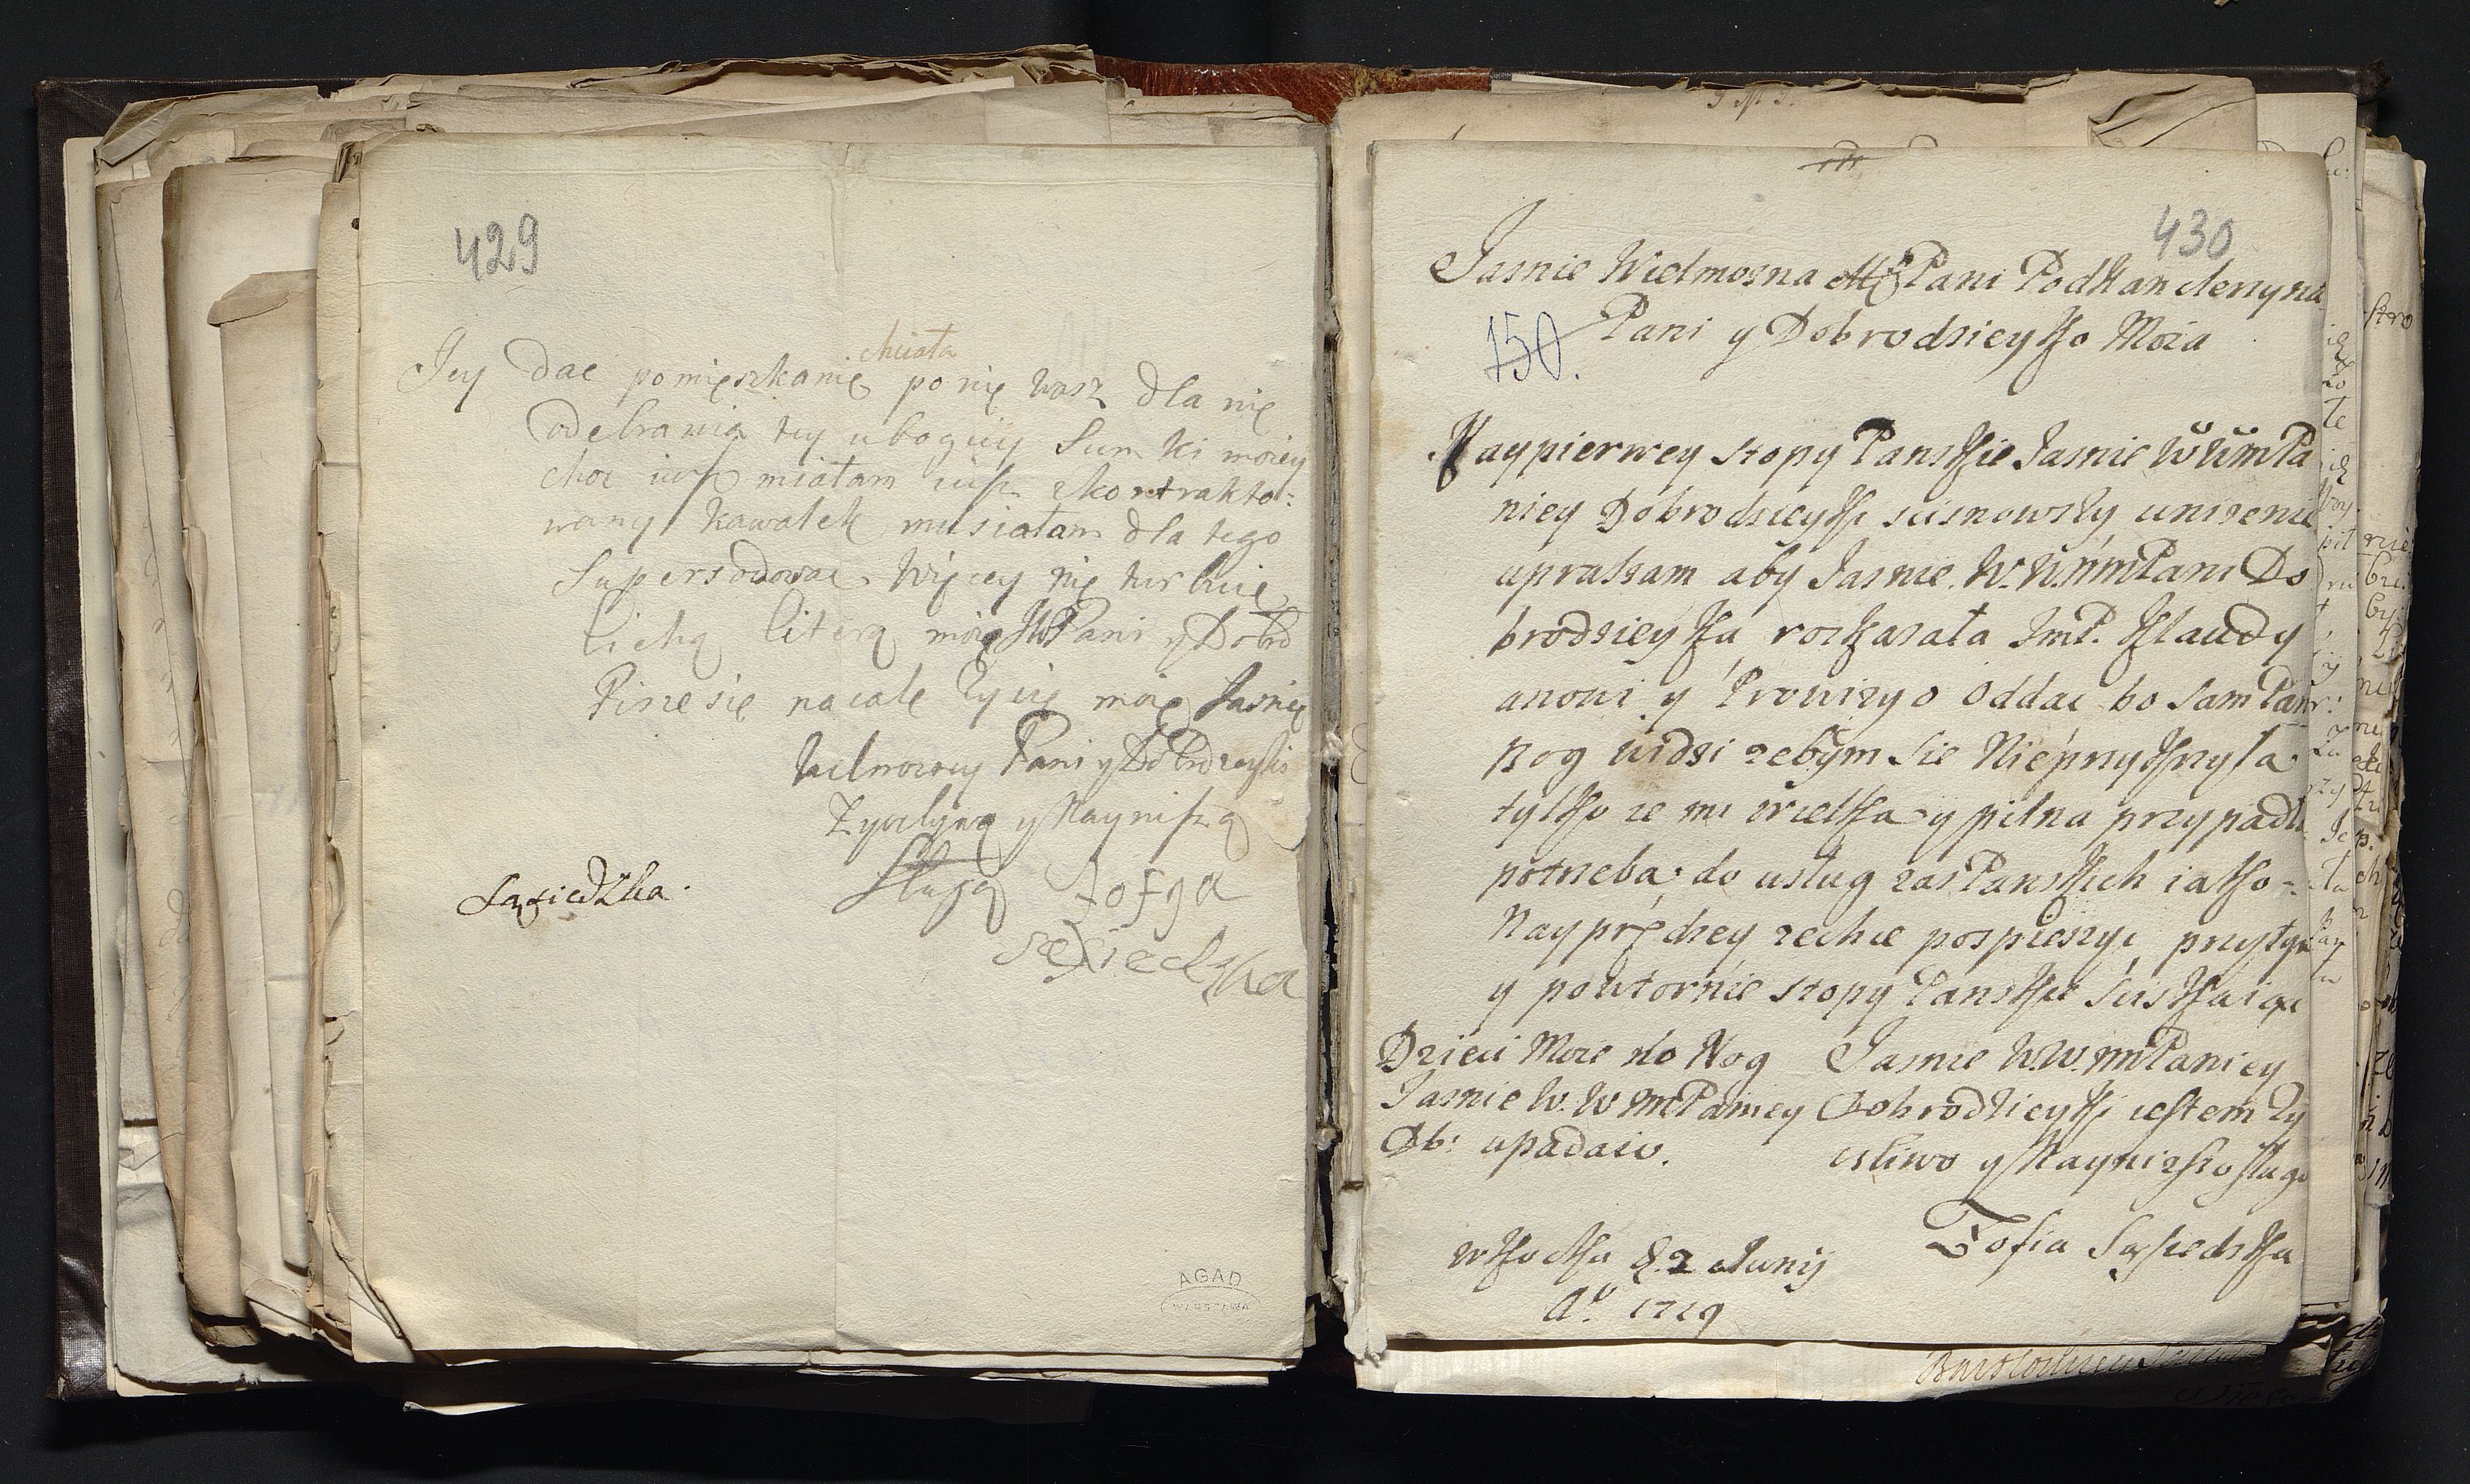 429
chciała
Jey dac pomięszkanię ponię wasz dla nię
odebranią tey ubogiiy Sumki moiey
choc iusz miałam iusz skontrakto:
wany kawałek musiałam dla tego
Supersodowac Więcey nię turbuię
lichą literą moię JWPani y Dobrd
Piszesię nacałe Zycię moię Jasnię
Wielmozney Pani y Dobrdzeyki
Zyczlywą y Nayniszą
Sługą Zofya
Sąsiedzka.
sęsiedzka
AGAD
WARSZAWA
430
Jasnie Wielmozna Pani Podkanclerzyna
150. Pani y Dobrodzieyko Moia
Naypierwey stopy Panskie Jasnie WWmPa
niey Dobrodzieyki scisnowszy unizenie
upraszam aby Jasnie W.WmmPani Do
brodzieyka roskazała ImP. Klaudy
anowi y Prowizyo oddac bo Sam Pan
Bog widzi zebym Sie Nieprzykrzyła
tylko ze mi wielka y pilna przypadła
potrzeba do usług zas Panskich iako-
Nayprędzey zechce pospieszyc przytym
y powtornie stopy Panskie sciskaiąc
Dzieci Moie do Nog Jasnie W.W.mmPaniey
Jasnie W.WmmPaniey Dobrodzieyki iestem zy
Db: upadaio. csliwo y Naynizszo sługo
Zofia Sąsiedzka
w Kocku d. 2 Junij
Ao. 1719